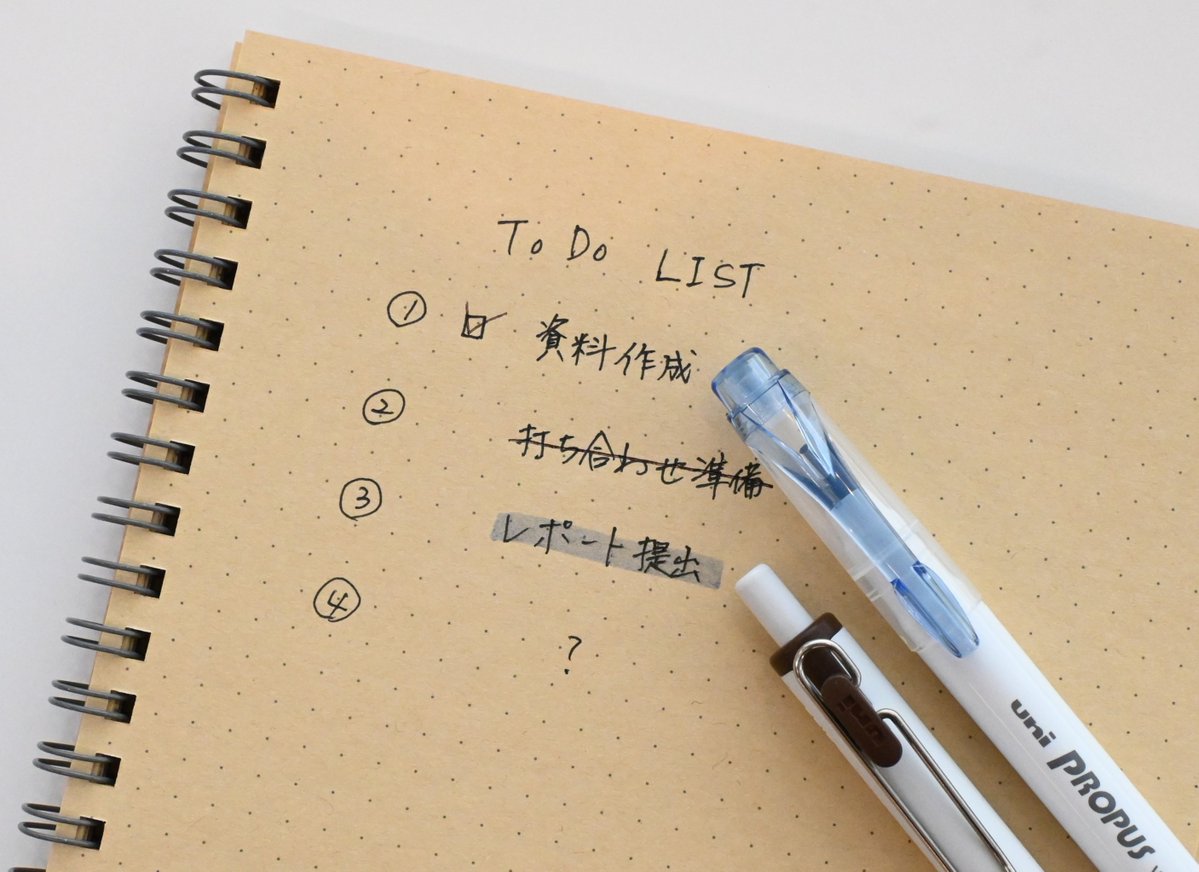 To Do LIST
① ☑ 資料作成
② 打ち合わせ準備
③ レポート提出
④ ?
uni
uni PROPUS